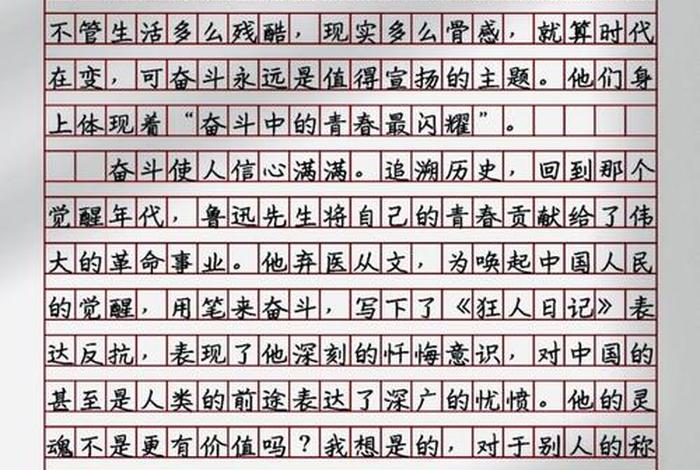 不管生活多么残酷，现实多么骨感，就算时代
在变，可奋斗永远是值得宣扬的主题。他们身
上体现着“奋斗中的青春最闪耀”。
奋斗使人信心满满。追溯历史，回到那个
觉醒年代，鲁迅先生将自己的青春贡献给了伟
大的革命事业。他弃医从文，为唤起中国人民
的觉醒，用笔来奋斗，写下了《狂人日记》表
达反抗，表现了他深刻的忏悔意识，对中国的
甚至是人类的前途表达了深广的忧愤。他的灵
魂不是更有价值吗？我想是的，对于别人的称